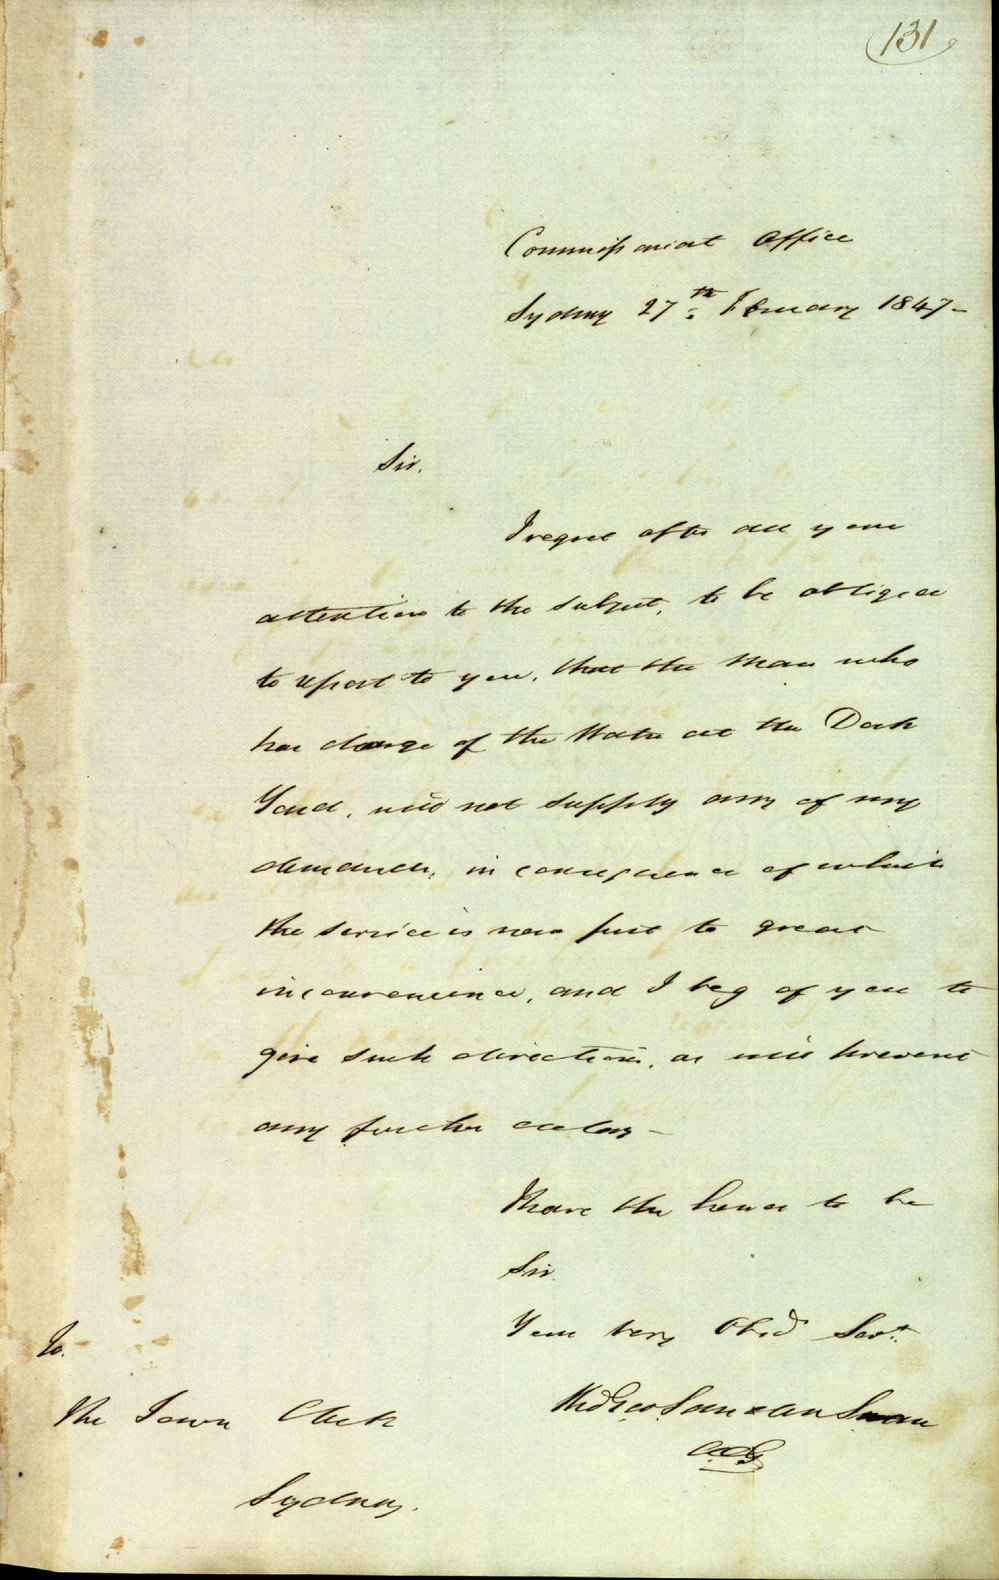 131
Commissariat Office
Sydney 27th February 1847 -
Sir,
I regret after all your
attention to the subject, to be obliged
to report to you, that the Man who
has charge of the Water at the Dock
Yard, will not supply any of my
demands, in consequence of which
the service is now put to great
inconvenience, and I beg of you to
give such directions, as will prevent
any further delay -
I have the honor to be
Sir
Your very Obed Servt
To.
The Town Clerk
Sydney.